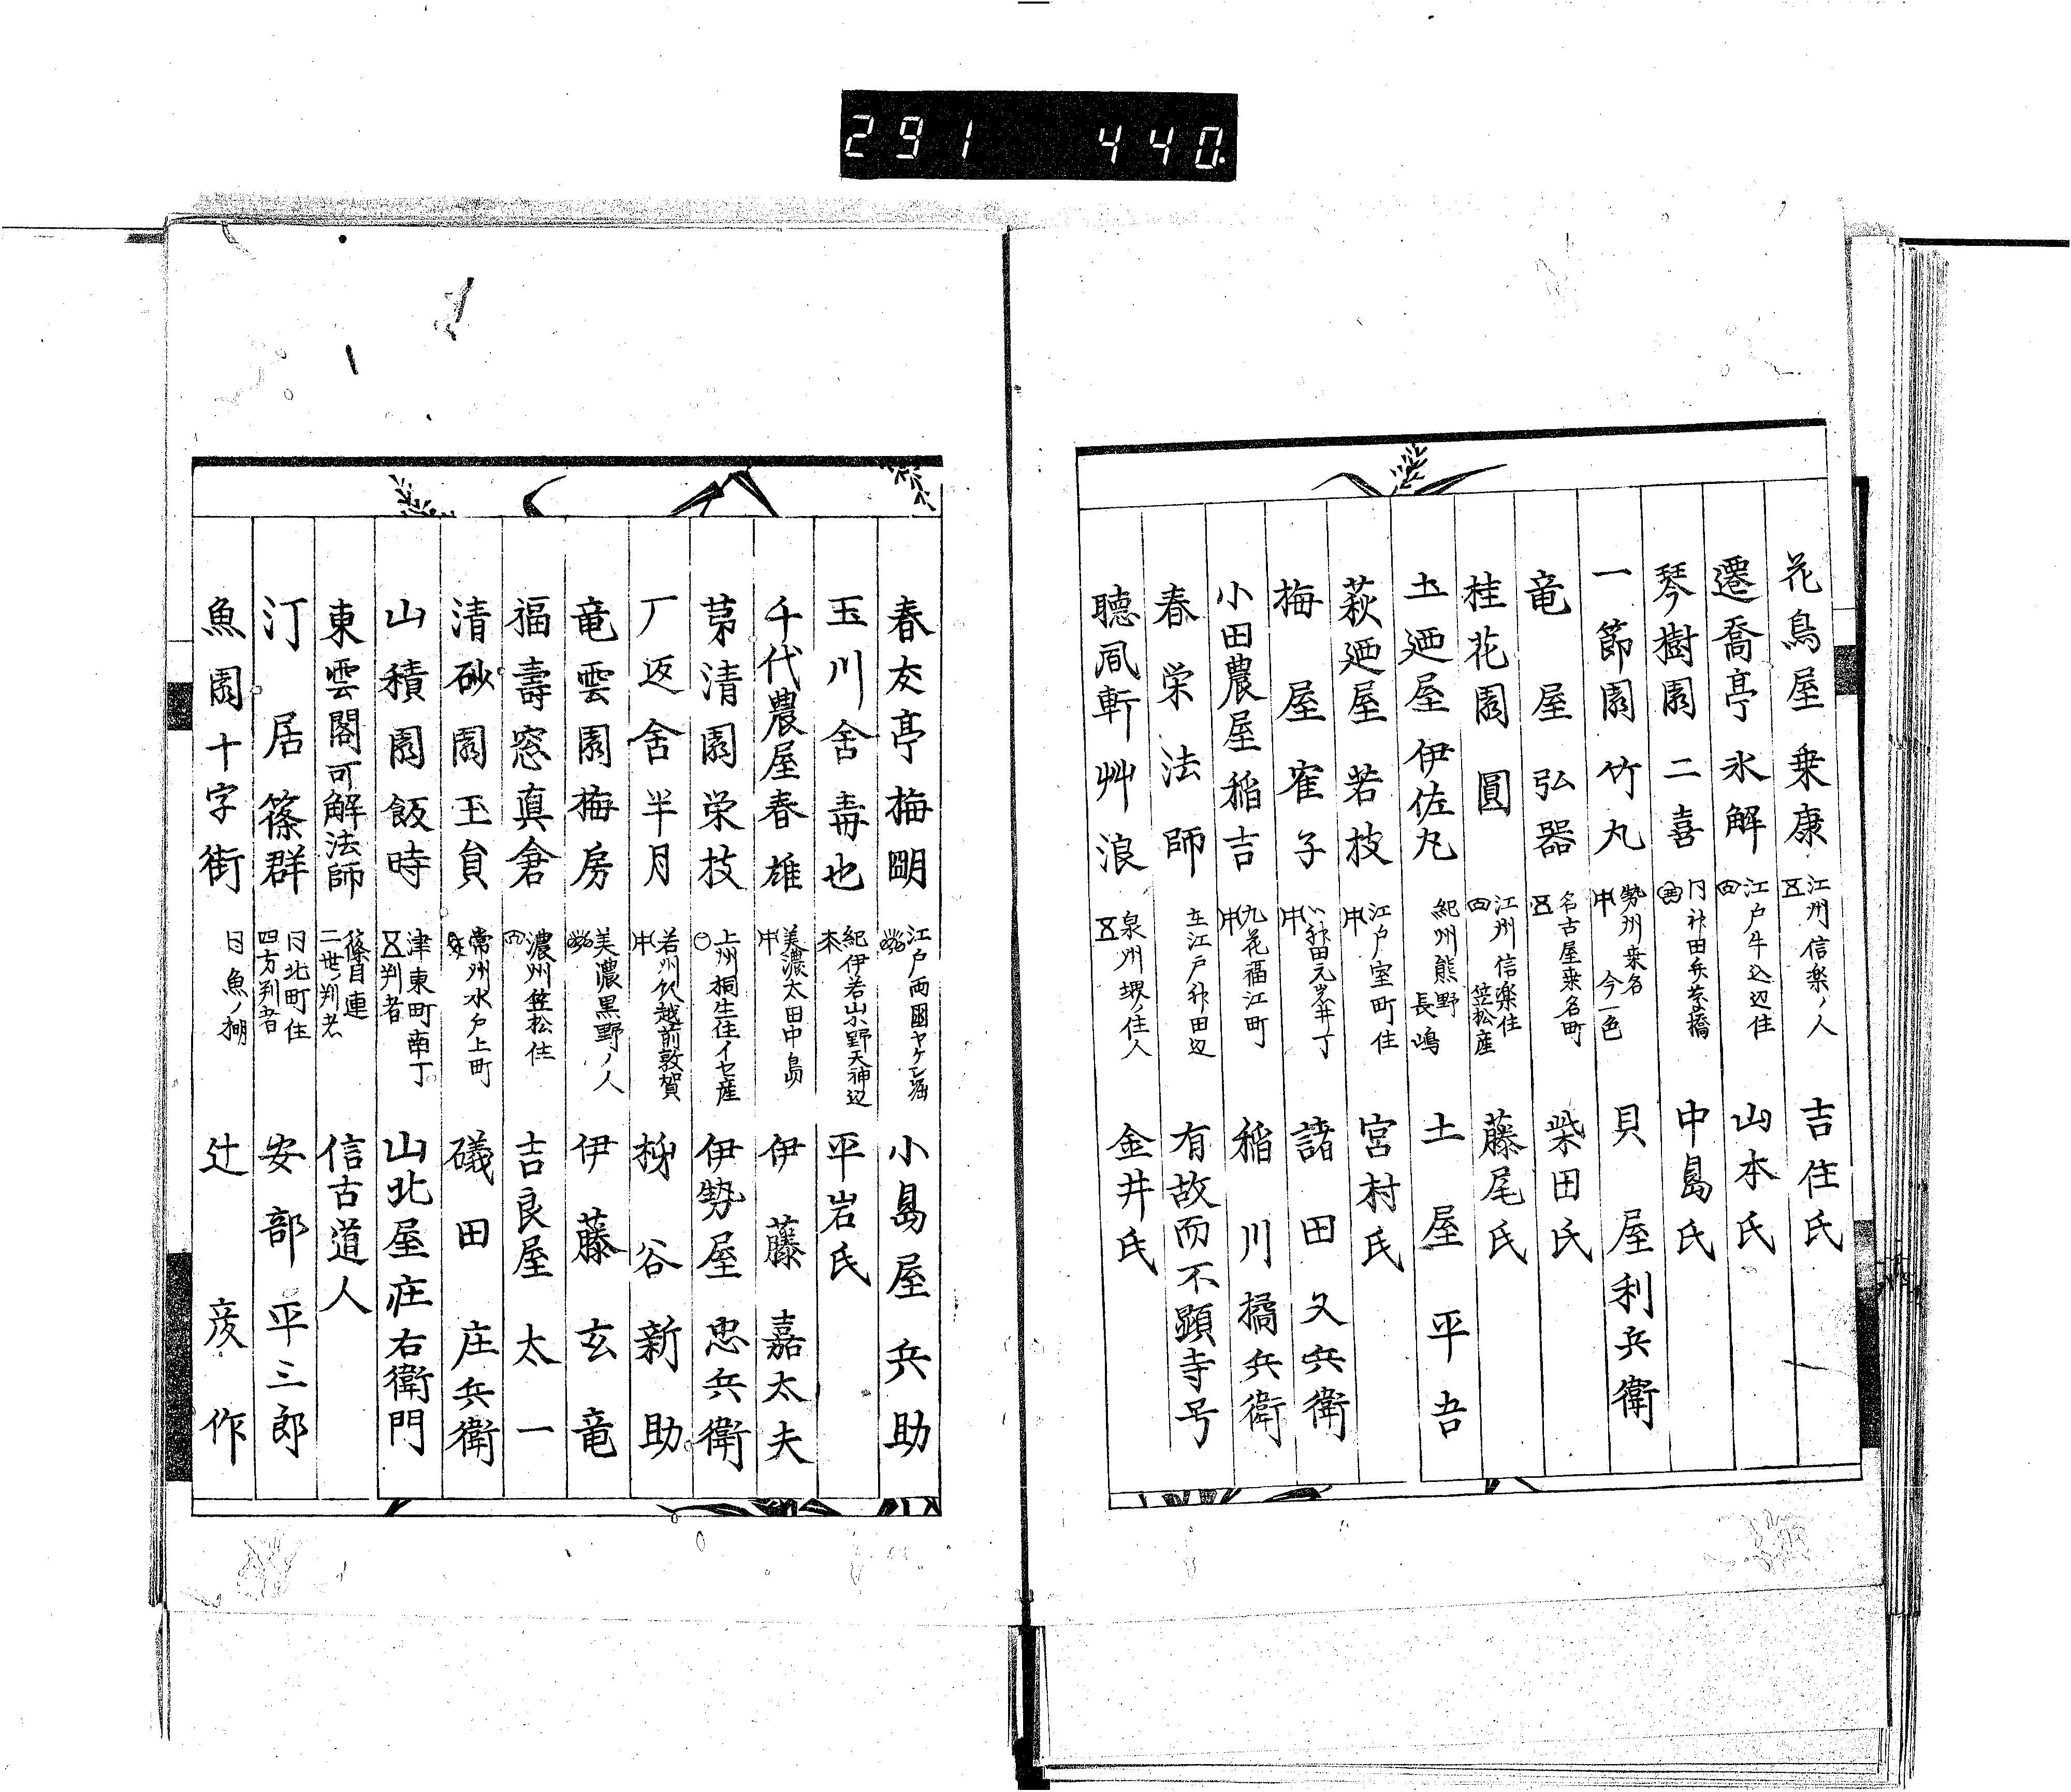 291 440
花鳥屋乗康 江州信楽ノ人 吉住氏
遷喬亭氷解 江戸牛込辺住 山本氏
琴樹園二喜 中島氏
一節園竹丸 勢州桒名 今一色 貝屋利兵衛
竜屋弘器 名古屋桒名町 柴田氏
桂花園圓 江州信楽住 笠松産 藤尾氏
土廼屋伊佐丸 紀州熊野 長嶋 土屋平吾
萩廼屋若枝 江戸室町住 宮村氏
梅屋隺子 諸田又兵衛
小田農屋稲吉 稲川橘兵衛
春栄法師 在江戸神田辺 有故而不顕寺号
聴風軒艸浪 泉州堺ノ住人 金井氏
春友亭梅明 江戸両國ヤゲン堀 小島屋兵助
玉川舎毒也 紀伊若山小野天神辺 平岩氏
千代農屋春雄 美濃太田中島 伊藤嘉太夫
苐清園栄技 上州桐生住イセ産 伊勢屋忠兵衛
厂返舎半月 谷新助
竜雲園梅房 美濃黒野ノ人 伊藤玄竜
福壽窓真倉 濃州笠松住 吉良屋太一
清砂園玉貟 常州水戸上町 礒田庄兵衛
山積園飯時 津東町南丁 判者 山北屋庄右衛門
東雲閣可解法師 篠目連 二世判者 信古道人
汀居篠群 日北町住 四方判者 安部平三郎
魚園十字街 日魚ノ棚 辻彦作